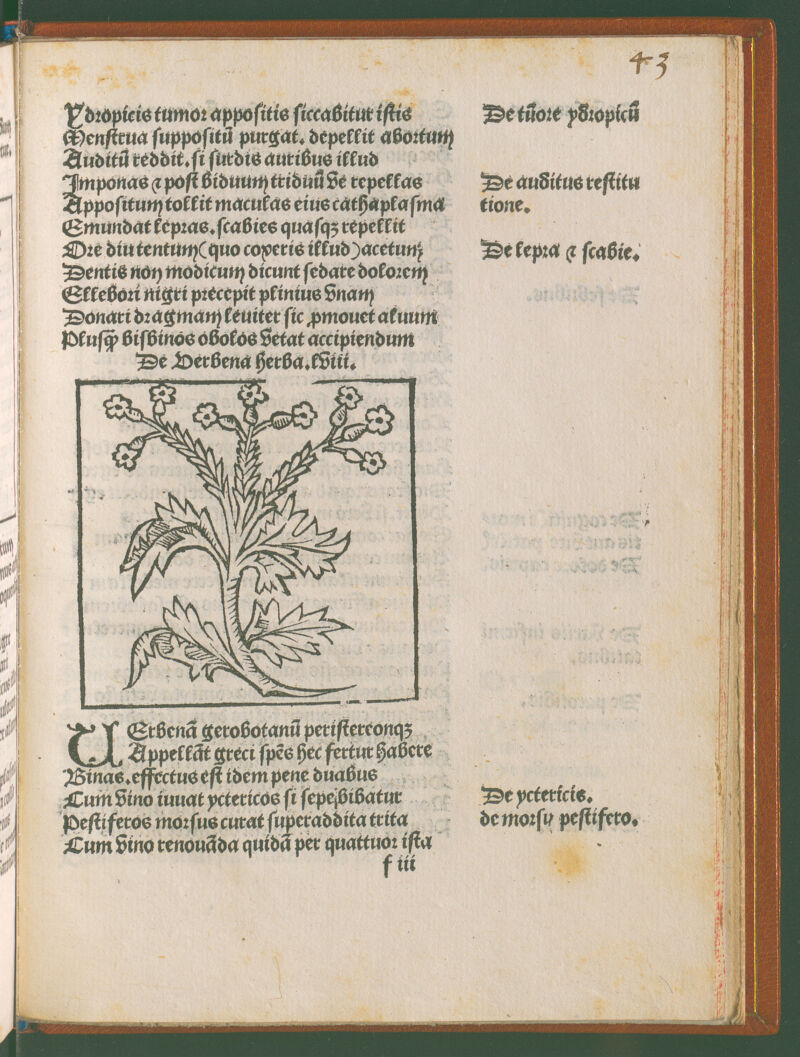 43
Ydropicis tumor appositis siccabitur istis
Menstrua suppositū purgat. depellit abortum
Auditū reddit. si surdis auribus illud
Imponas ⁊ post biduum triduū ve repellas
Appositum tollit maculas eius cathaplasma
Emundat lepras. scabies quasqꝫ repellit
Ore diu tentum (quo coxeris illud) acetum
Dentis non modicum dicunt sedare dolorem
Ellebori nigri precepit plinius vnam
Donari dragmam leuiter sic ꝓmouet aluum
Plusqꝫ bisbinos obolos vetat accipiendum
De tūore ydropicū
De auditus restitu
tione.
De lepra ⁊ scabie.
De Verbena herba. lviii.
VErbenā gerobotanū peristereonqꝫ
Appellāt greci spēs hec fertur habere
Binas. effectus est idem pene duabus
Cum vino iuuat yctericos si sepe bibatur
Pestiferos morsus curat superaddita trita
Cum vino renouāda quidā per quattuor ista
De yctericis.
de morsu pestifero.
f iii